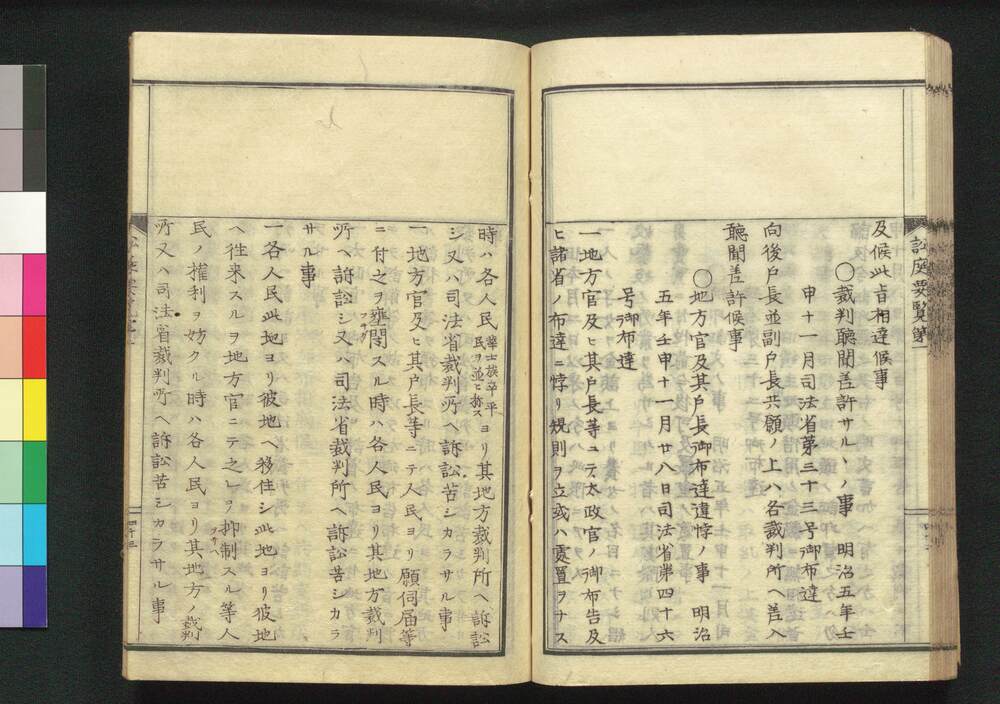 訟庭要覧第一
及候此旨相達候事
〇裁判聴聞差許サルヽノ事　明治五年壬
申十一月司法省第三十三号御布達
向後戸長並副戸長共願ノ上ハ各裁判所ヘ差入
聴聞差許候事
〇地方官及其戸長御布達違悖ノ事　明治
五年壬申十一月廿八日司法省第四十六
号御布達
一地方官及ヒ其戸長等ニテ太政官ノ御布告及
ヒ諸省ノ布達ニ悖リ規則ヲ立或ハ処置ヲナス
時ハ各人民華士族卒平民ヲ並ヒ称スヨリ其地方裁判所ヘ訴訟
シ又ハ司法省裁判所ヘ訴訟苦シカラサル事
一地方官及ヒ其戸長等ニテ人民ヨリ願伺届等
ニ付之ヲ壅閉フサグスル時ハ各人民ヨリ其地方裁判
所ヘ訴訟シ又ハ司法省裁判所ヘ訴訟苦シカラ
サル事
一各人民此地ヨリ彼地ヘ移住シ此地ヨリ彼地
ヘ往来スルヲ地方官ニテ之レヲ抑制スル等人
民ノ権利ヲ妨クル時ハ各人民ヨリ其地方ノ裁判
所又ハ司法省裁判所ヘ訴訟苦シカラサル事
四十三